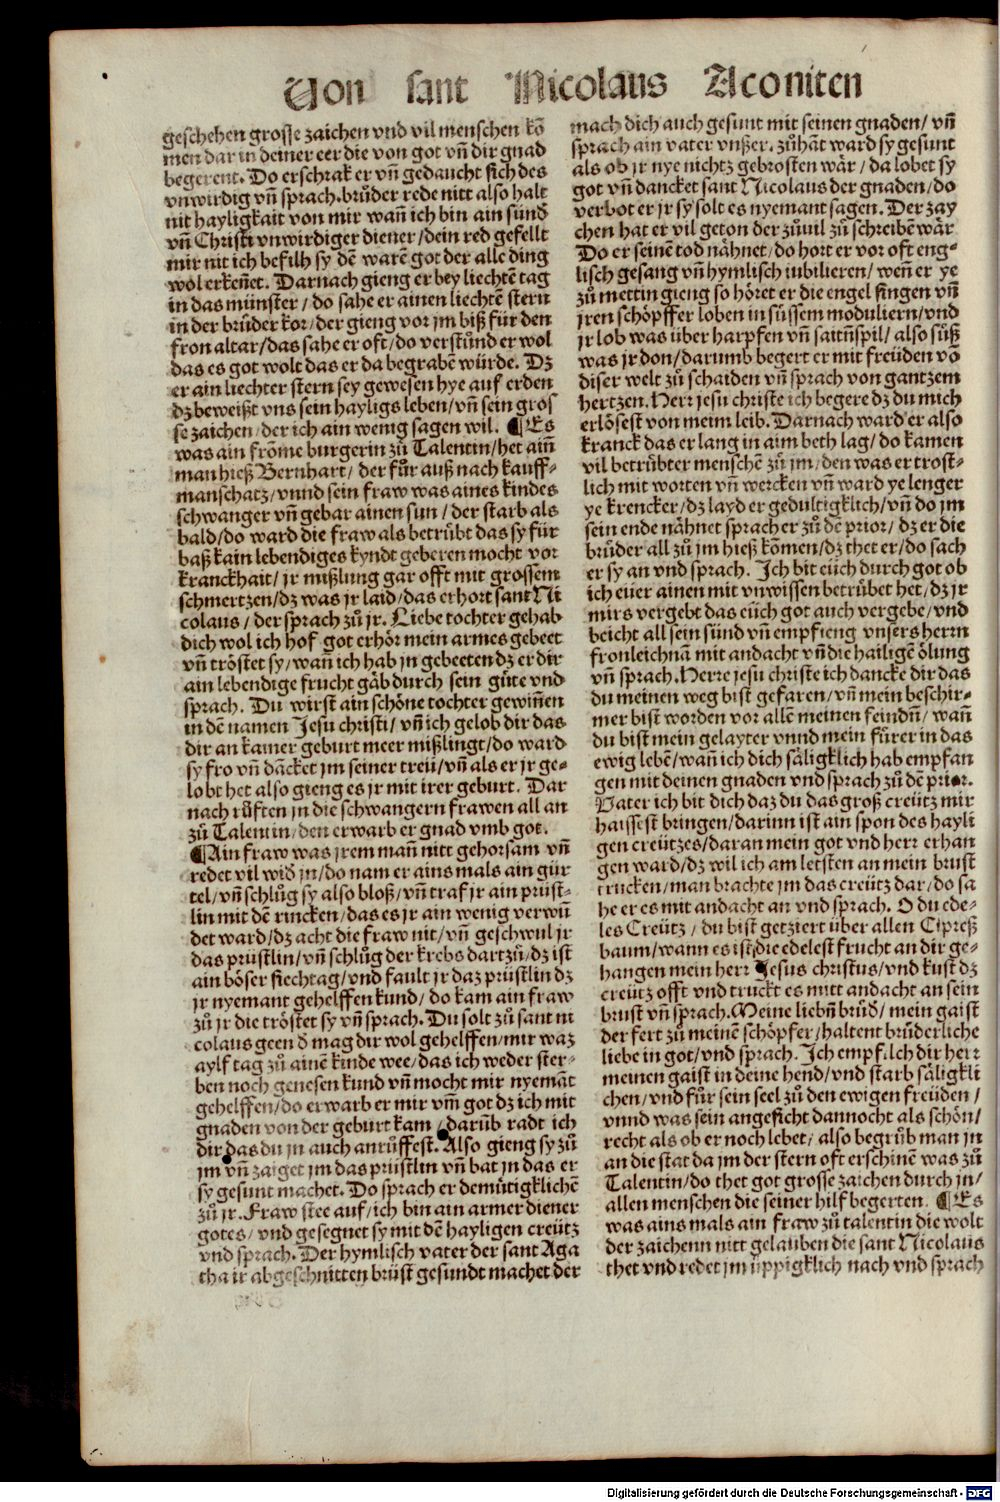 Von sant Nicolaus Aconiten
geschehen grosse zaichen vnd vil menschen kō
men dar in deiner eer die von got vn̄ dir gnad
begerent. Do erschrak er vn̄ gedaucht sich des
vnwirdig vn̄ sprach. brůder rede nitt also halt
nit hayligkait von mir wan̄ ich bin ain sünd
vn̄ Christi vnwirdiger diener/dein red gefellt
mir nit ich befilh sy dē warē got der alle ding
wol erken̄et. Darnach gieng er bey liechtē tag
in das münster/ do sahe er ainen liechtē stern
in der brůder kor/der gieng vor jm biß für den
fron altar/das sahe er oft/do verstůnd er wol
das es got wolt das er da begrabē würde. Dz
er ain liechter stern sey gewesen hye auf erden
dz beweißt vns sein hayligs leben/vn̄ sein gros
se zaichen/der ich ain wenig sagen wil. ¶Es
was ain frōme burgerin zů Talentin/het ain̄
man hieß Bernhart/ der für auß nach kauff-
manschatz/vnnd sein fraw was aines kindes
schwanger vn̄ gebar ainen sun/ der starb als
bald/do ward die fraw als betrübt das sy für
baß kain lebendiges kyndt geberen mocht vor
kranckhait/ jr mißlung gar offt mit grossem
schmertzen/dz was jr laid/das erhort sant Ni
colaus/ der sprach zů jr. Liebe tochter gehab
dich wol ich hof got erhör mein armes gebeet
vn̄ tröstet sy/wan̄ ich hab jn gebeeten dz er dir
ain lebendige frucht gäb durch sein güte vnd
sprach. Du wirst ain schöne tochter gewin̄en
in dē namen Jesu christi/ vn̄ ich gelob dir das
dir an kainer geburt meer mißlingt/do ward
sy fro vn̄ dācket jm seiner treü/vn̄ als er jr ge-
lobt het also gieng es jr mit irer geburt. Dar
nach růften jn die schwangern frawen all an
zů Talentin/den erwarb er gnad vmb got.
¶Ain fraw was jrem man̄ nitt gehorsam vn̄
redet vil wid jn/do nam er ains mals ain gür
tel/vn̄ schlůg sy also bloß/vn̄ traf jr ain prüst-
lin mit dē rincken/das es jr ain wenig verwū
det ward/dz acht die fraw nit/vn̄ geschwul jr
das prüstlin/vn̄ schlůg der krebs dartzů/dz ist
ain böser siechtag/vnd fault jr daz prüstlin dz
jr nyemant gehelffen kund/ do kam ain fraw
zů jr die tröstet sy vn̄ sprach. Du solt zů sant ni
colaus geen d mag dir wol gehelffen/mir waz
aylf tag zů ainē kinde wee/das ich weder ster-
ben noch genesen kund vn̄ mocht mir nyemāt
gehelffen/do erwarb er mir vm̄ got dz ich mit
gnaden von der geburt kam/darūb radt ich
dir das du jn auch anrůffest. Also gieng sy zů
jm vn̄ zaiget jm das prüstlin vn̄ bat jn das er
sy gesunt machet. Do sprach er demütigklichē
zů jr. Fraw stee auf/ich bin ain armer diener
gotes/ vnd gesegnet sy mit dē hayligen creütz
vnd sprach. Der hymlisch vater der sant Aga
tha ir abgeschnitten brüst gesundt machet der
mach dich auch gesunt mit seinen gnaden/ vn̄
sprach ain vater vnßer. zůhāt ward sy gesunt
als ob jr nye nichtz gebrosten wär/da lobet sy
got vn̄ dancket sant Nicolaus der gnaden/do
verbot er jr sy solt es nyemant sagen. Der zay
chen hat er vil geton der zůuil zů schreibē wär
Do er seinē tod nähnet/do hort er vor oft eng-
lisch gesang vn̄ hymlisch iubilieren/wen̄ er ye
zů mettin gieng so höret er die engel singen vn̄
jren schöpffer loben in süssem moduliern/vnd
jr lob was über harpfen vn̄ saitn̄spil/also süß
was jr don/darumb begert er mit freüden vō
diser welt zů schaiden vn̄ sprach von gantzem
hertzen. Herr jesu christe ich begere dz du mich
erlösest von meim leib. Darnach ward er also
kranck das er lang in aim beth lag/do kamen
vil betrübter menschē zů jm/den was er tröst-
lich mit worten vn̄ wercken vn̄ ward ye lenger
ye krencker/dz layd er gedultigklich/vn̄ do jm
sein ende nähnet sprach er zů dē prior/ dz er die
brüder all zů jm hieß kōmen/dz thet er/do sach
er sy an vnd sprach. Ich bit eüch durch got ob
ich eüer ainen mit vnwissen betrübet het/dz jr
mirs vergebt das eüch got auch vergebe/vnd
beicht all sein sünd vn̄ empfieng vnsers herrn
fronleichnā mit andacht vn̄ die hailigē ölung
vn̄ sprach. Herre jesu christe ich dancke dir das
du meinen weg bist gefaren/vn̄ mein beschir-
mer bist worden vor allē meinen feindn̄/wan̄
du bist mein gelayter vnnd mein fürer in das
ewig lebē/wan̄ ich dich säligklich hab empfan
gen mit deinen gnaden vnd sprach zů dē prior.
Vater ich bit dich daz du das groß creütz mir
haissest bringen/darinn ist ain spon des hayli
gen creützes/daran mein got vnd herr erhan
gen ward/dz wil ich am letsten an mein brust
trucken/man brachte jm das creütz dar/do sa
he er es mit andacht an vnd sprach. O du ede-
les Creütz/ du bist getziert über allen Cipreß
baum/wann es ist die edelest frucht an dir ge-
hangen mein herr Jesus christus/vnd kust dz
creütz offt vnd truckt es mitt andacht an sein
brust vn̄ sprach. Meine liebn̄ brůd/ mein gaist
der fert zů meinē schöpfer/haltent brüderliche
liebe in got/vnd sprach. Ich empf.lch dir herr
meinen gaist in deine hend/vnd starb säligkli
chen/vnd für sein seel zů den ewigen freüden/
vnnd was sein angesicht dannocht als schön/
recht als ob er noch lebet/ also begrůb man jn
an die stat da jm der stern oft erschinē was zů
Talentin/do thet got grosse zaichen durch jn/
allen menschen die seiner hilf begerten. ¶Es
was ains mals ain fraw zů talentin die wolt
der zaichenn nitt gelauben die sant Nicolaus
thet vnd redet jm üppigklich nach vnd sprach
Digitalisierung gefördert durch die Deutsche Forschungsgemeinschaft - DFG